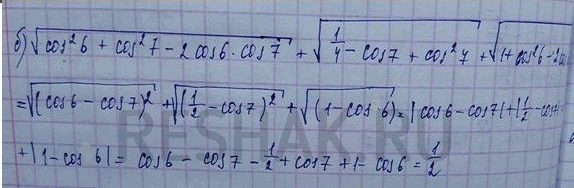 б) √(cos²6 + cos²7 - 2cos6·cos7) + √(1/4 - cos7 + cos²7) + √(1 + cos²6 - 2cos
= √(cos6 - cos7)² + √(1/2 - cos7)² + √(1 - cos6) = |cos6 - cos7| + |1/2 - cos7|
+ |1 - cos6| = cos6 - cos7 - 1/2 + cos7 + 1 - cos6 = 1/2
RESHAK.RU